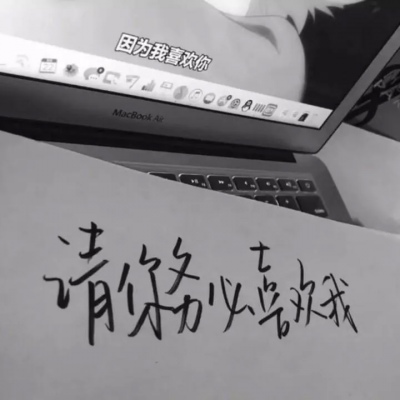 因为我喜欢你
MacBook Air
请你務必喜欢我